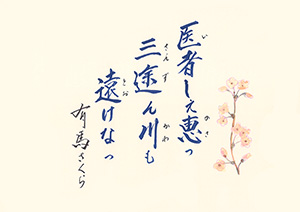 医者しえ恵っ
三途ん川も
遠けなっ
有馬さくら